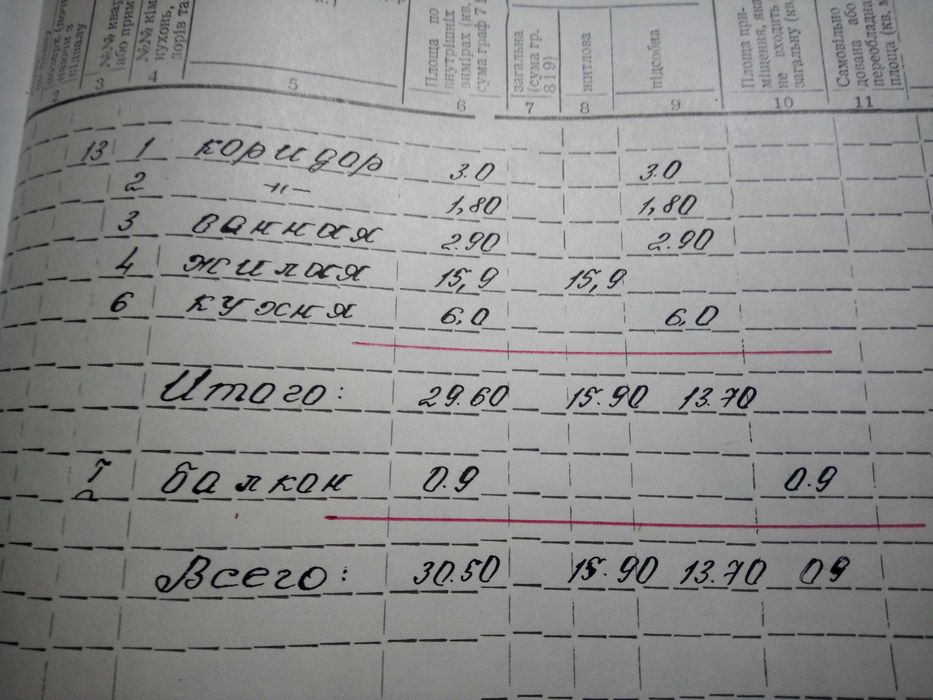 №№ квар
або прим
№№ кім
кухонь,
дорів та
Площа по
внутрішніх
вимірах (кв.
сума граф 7 і
загальна
(сума гр.
8 і 9)
житлова
підсобна
Площа при-
міщення, яка
не входить
загальну (кв.
Самовільно
дована або
переобладна
площа (кв. м
3 4 5 6 7 8 9 10 11
13 1 коридор 3.0 3.0
2 -"- 1,80 1,80
3 ванная 2.90 2.90
4 жилая 15,9 15,9
6 кухня 6,0 6,0
Итого: 29.60 15.90 13.70
I балкон 0.9 0.9
Всего: 30.50 15.90 13.70 09